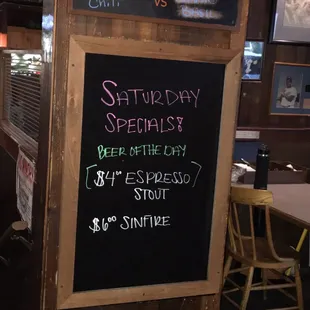 Chili vs
SATURDAY
SPECIALS!
BEER OF THE DAY
[$4.00 ESPRESSO]
STOUT
$6.00 SINFIRE